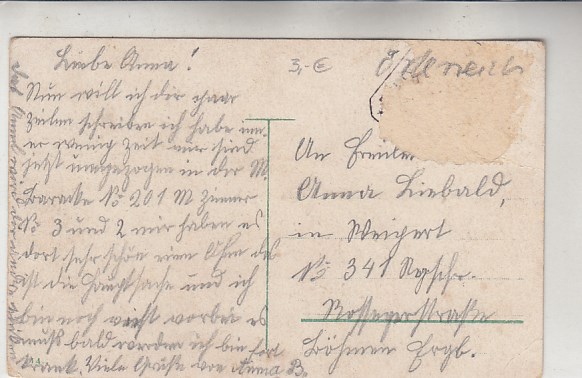 Liebe Anna!
Nun will ich dir paar
Zeilen schreiben ich habe im̄
er wenig Zeit mir sind
jetzt umgezogen in der M
Baracke № 201 M Zimmer
№ 3 und 2 mir haben es
dort sehr schön ein Ofen das
ist die Hauptsache und ich
bin noch nicht vorbei es
muß bald werden ich bin fort
krank. Viele Grüße von Anna B.
3,- €
Österreich
An Freulei
Anna Liebald,
in Weipert
№ 341
Rosseggerstraße
Böhmen Ergb.